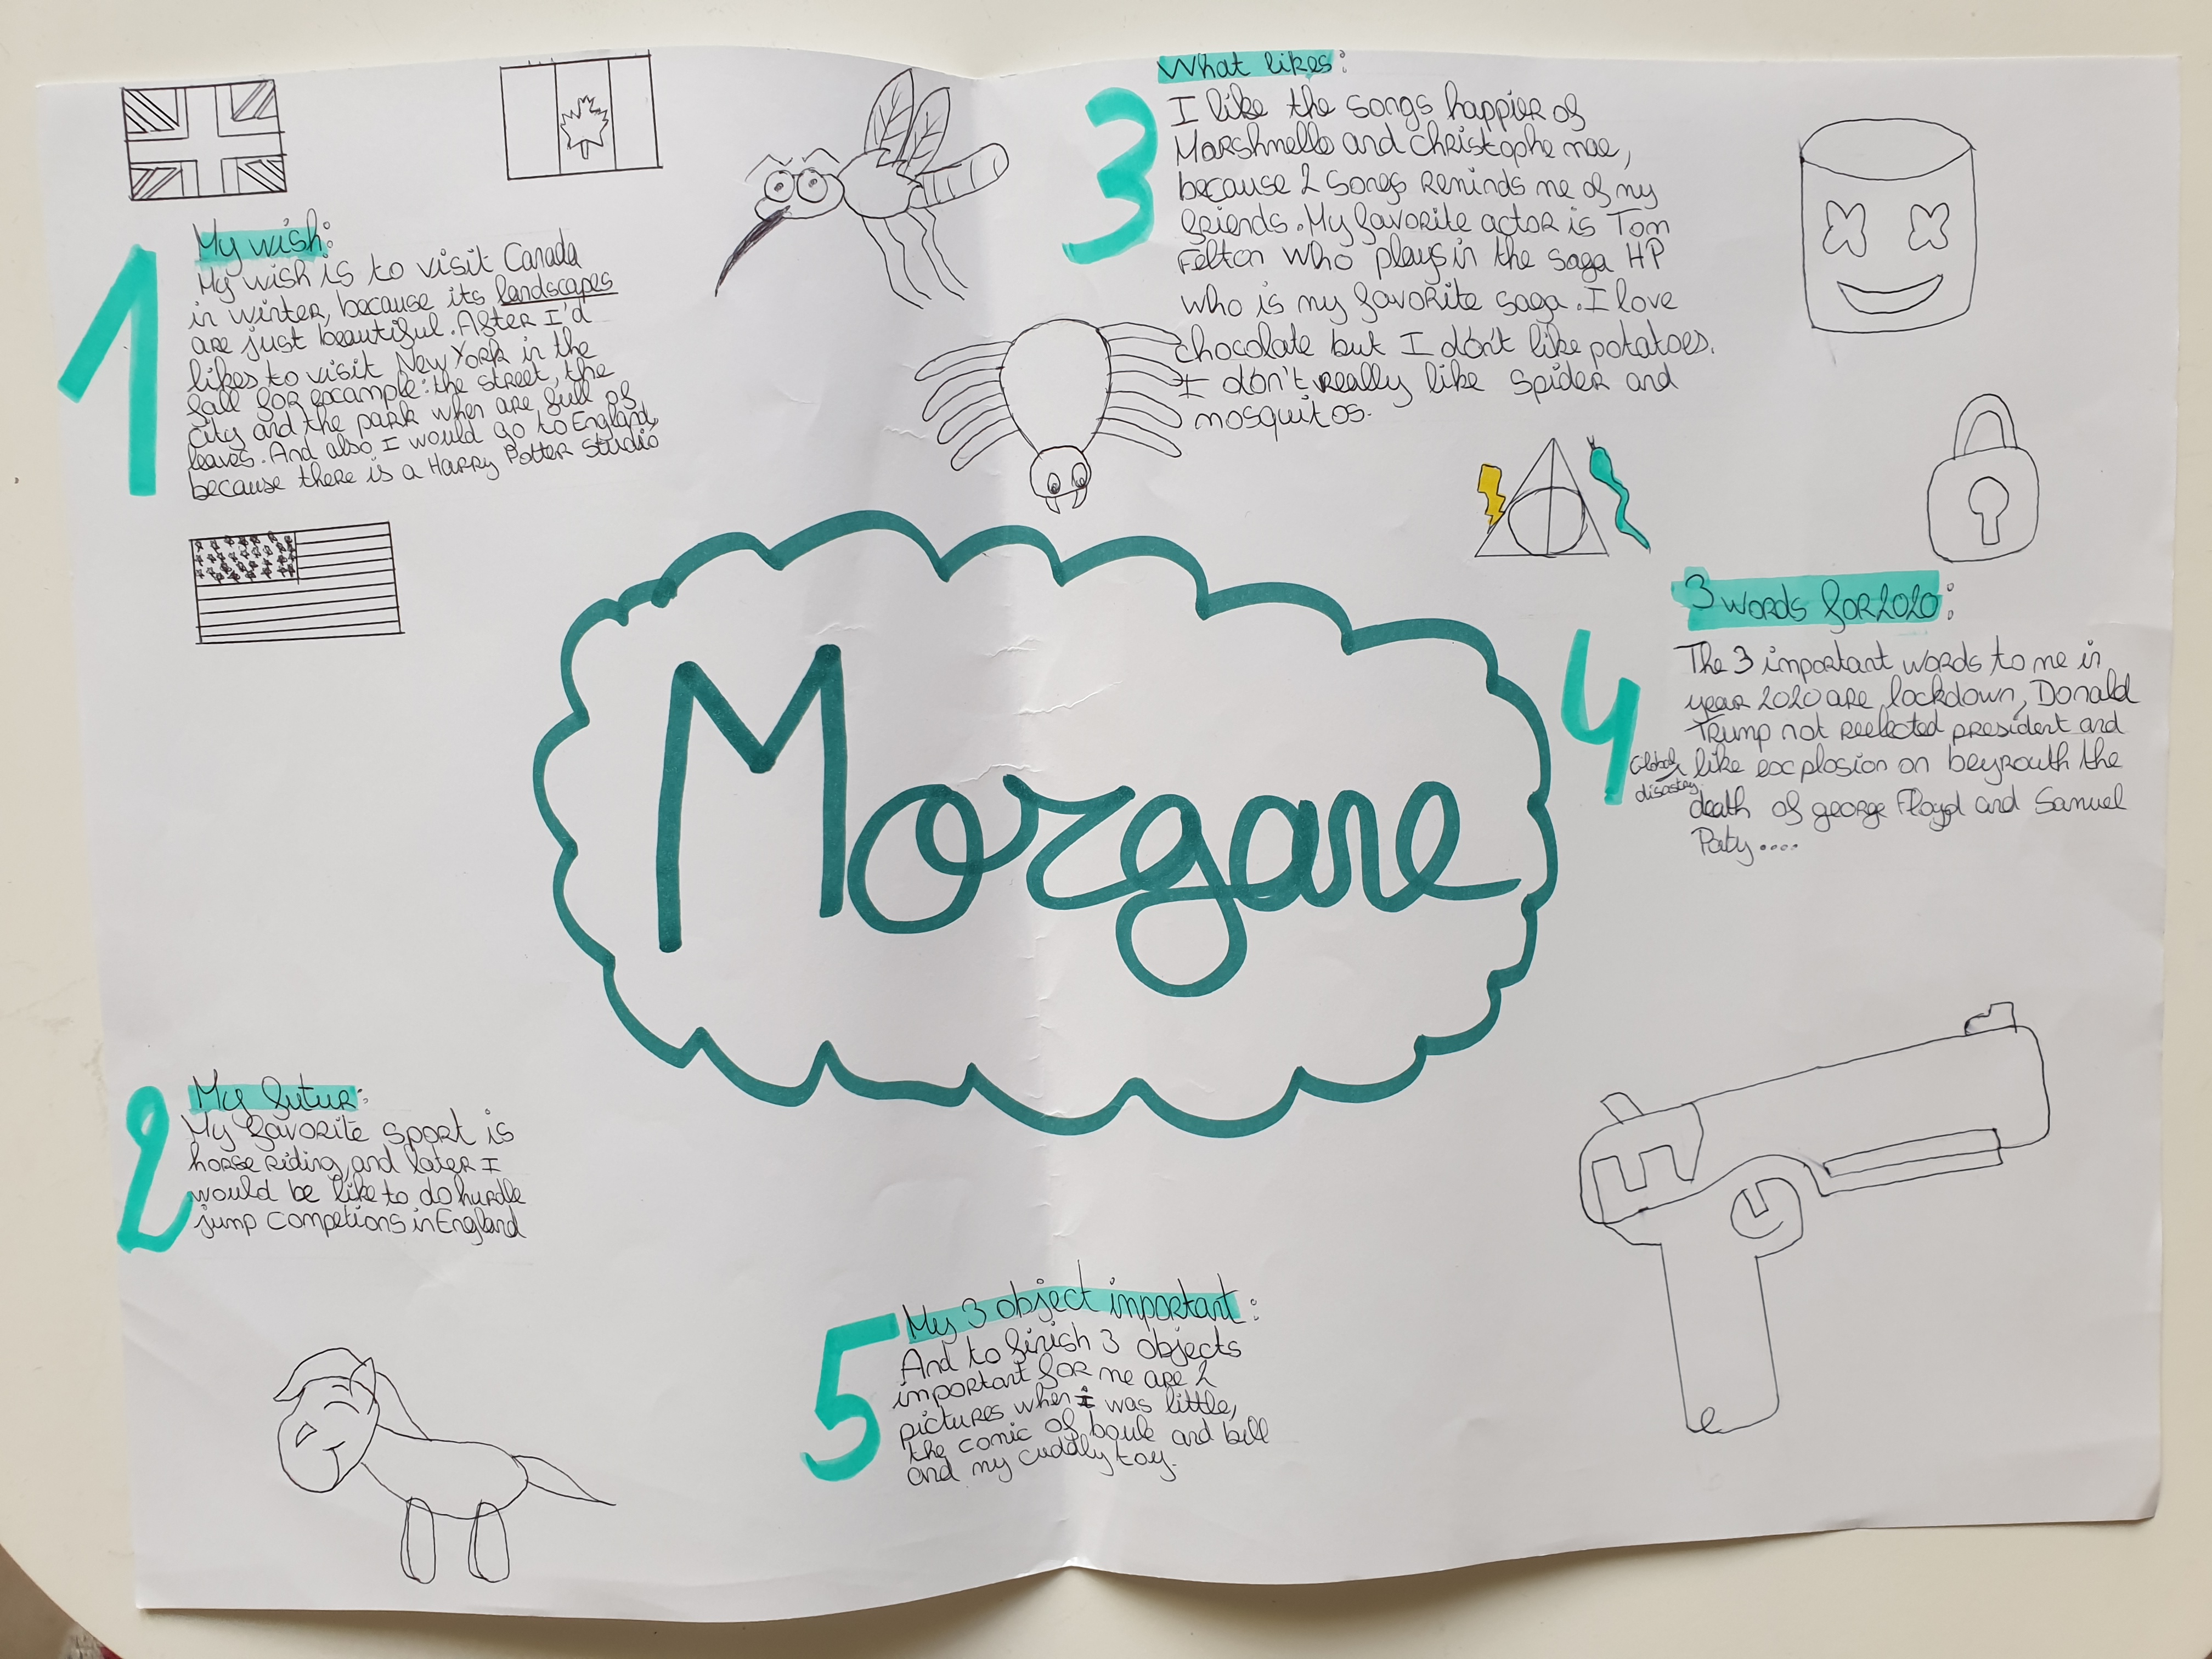 1
My wish:
My wish is to visit Canada
in winter, because its landscapes
are just beautiful. After I'd
likes to visit New York in the
fall for example: the street, the
city and the park when are full of
leaves. And also I would go to England,
because there is a Harry Potter studio
3
What likes:
I like the songs happier of
Marshmello and christophe mae,
because 2 songs reminds me of my
friends. My favorite actor is Tom
Felton who plays in the saga HP
who is my favorite saga. I love
chocolate but I don't like potatoes.
I don't really like spider and
mosquitos.
Morgane
4
3 words for 2020:
The 3 important words to me in
year 2020 are lockdown, Donald
Trump not reelected president and
like explosion on beyrouth the
death of george Floyd and Samuel
Paty....
2
My futur:
My favorite sport is
horse riding, and later I
would be like to do hurdle
jump competions in England
5
My 3 object important:
And to finish 3 objects
important for me are 2
pictures when i was little,
the comic of boule and bill
and my cuddly toy.